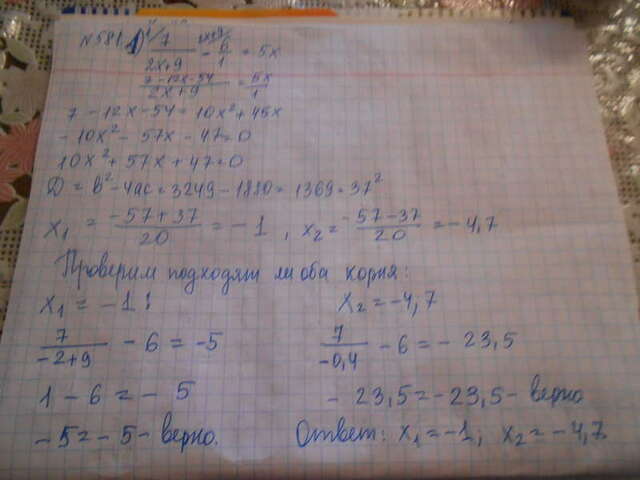 N581. 1) 7/(2x+9) - 6/1 = 5x
(7-12x-54)/(2x+9) = 5x/1
7-12x-54=10x²+45x
-10x²-57x-47=0
10x²+57x+47=0
D=b²-4ac=3249-1880=1369=37²
x₁ = (-57+37)/20 = -1, x₂ = (-57-37)/20 = -4,7
Проверим подходят ли оба корня:
x₁ = -1: x₂ = -4,7
7/(-2+9) - 6 = -5 7/(-0,4) - 6 = -23,5
1-6=-5 -23,5=-23,5- верно
-5=-5- верно. Ответ: x₁=-1; x₂=-4,7.